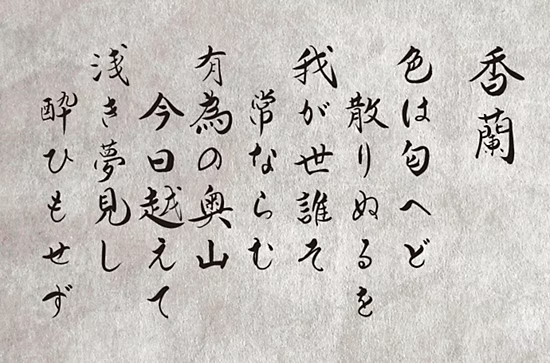 香蘭
色は匂へど
散りぬるを
我が世誰そ
常ならむ
有為の奥山
今日越えて
浅き夢見し
酔ひもせず